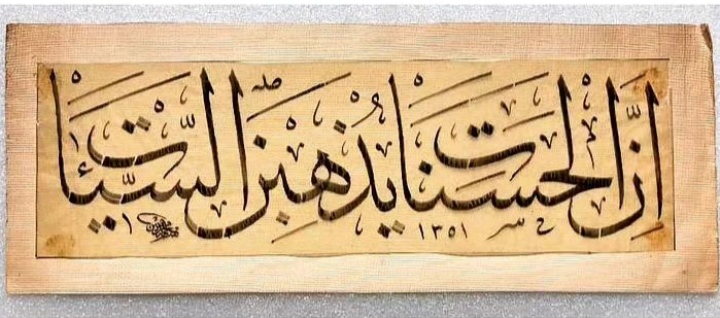 إنَّ الحسنات يُذهبن السَّيِّئات
١٣٥١